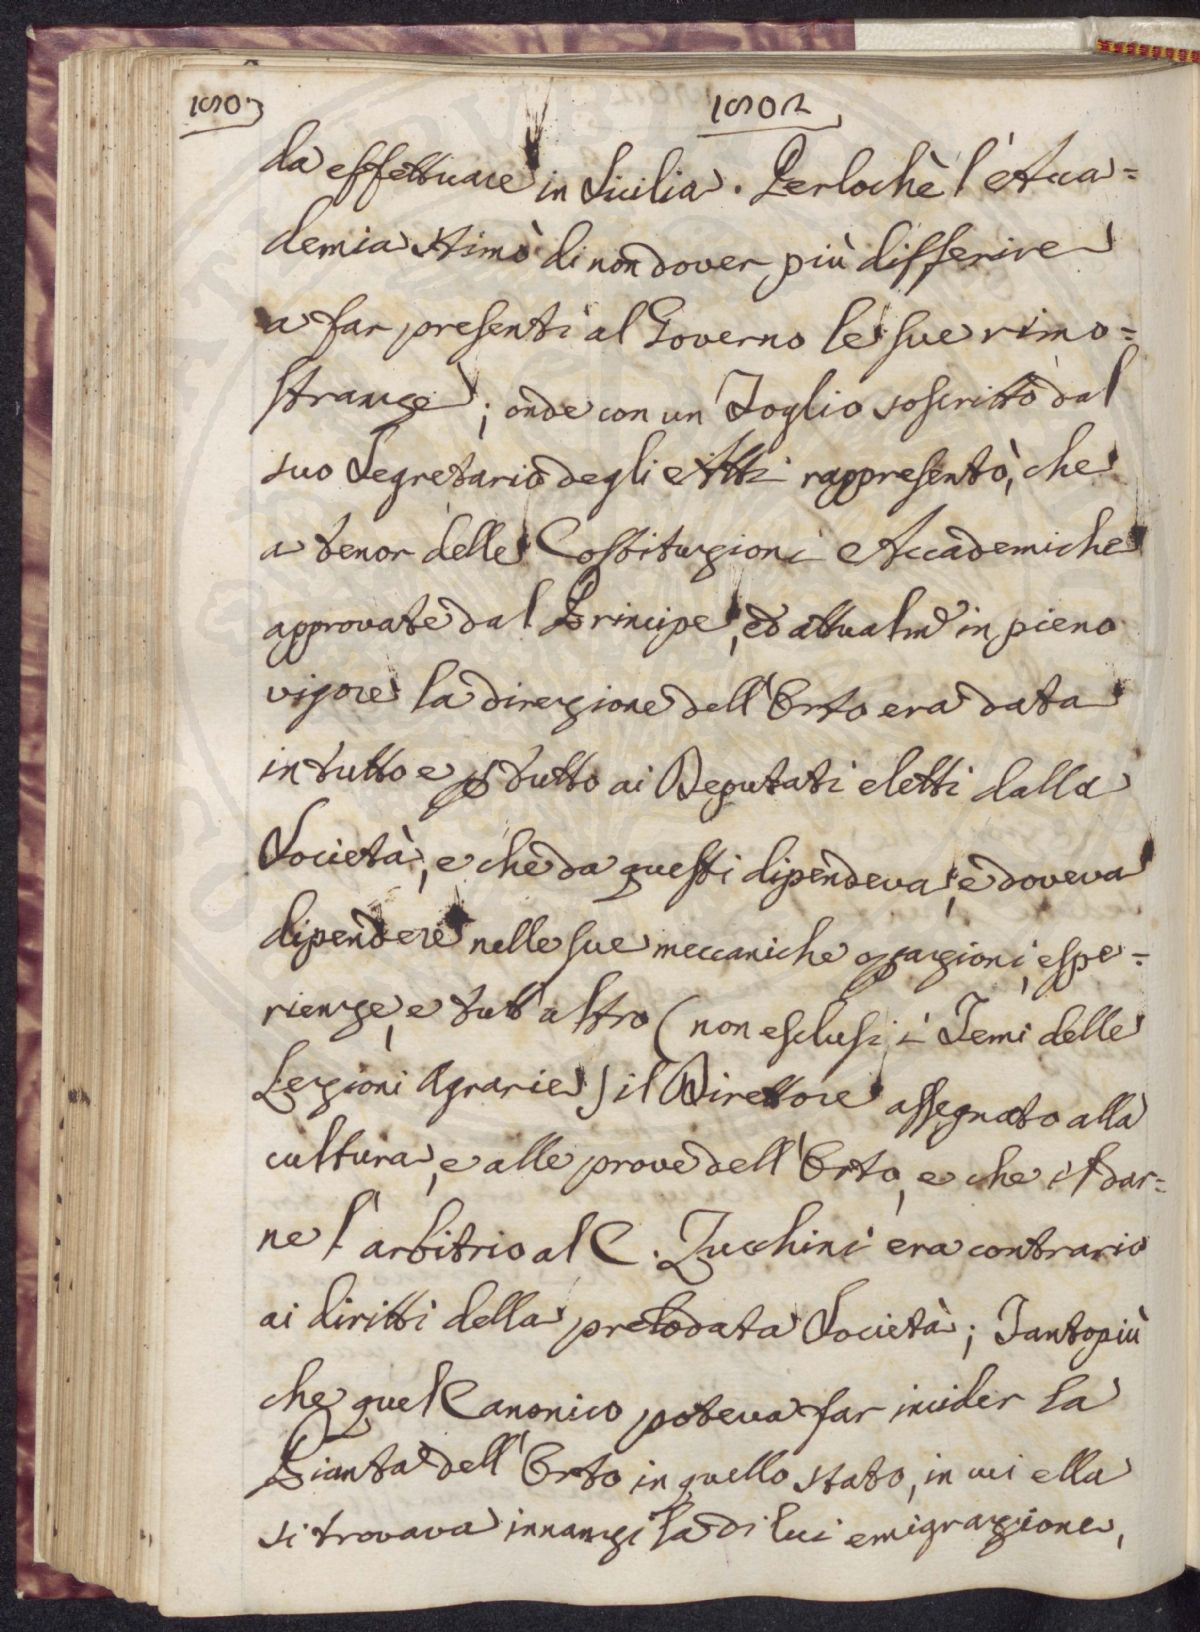 1802
da effettuare in Sicilia. Perlochè l'Acca=
demia stimò di non dover più differire
a far presenti al Governo le sue rimo=
stranze; onde con un Foglio soscritto dal
suo Segretario degli Atti rappresentò, che
a tenor delle Costituzioni Accademiche
approvate dal Principe, ed attualm.e in pieno
vigore la direzione dell'Orto era data
in tutto e p tutto ai Deputati eletti dalla
Società, e che da questi dipendeva, e doveva
dipendere nelle sue meccaniche opazioni, espe=
rienze, e tutt'altro (non esclusi i Temi delle
Lezioni Agrarie) il Direttore assegnato alla
cultura, e alle prove dell'Orto, e che il dar=
ne l'arbitrio al C. Zucchini era contrario
ai diritti della prelodata Società; Tantopiù
che quel Canonico poteva far incider la
Pianta dell'Orto in quello stato, in cui ella
si trovava innanzi la di lui emigrazione,